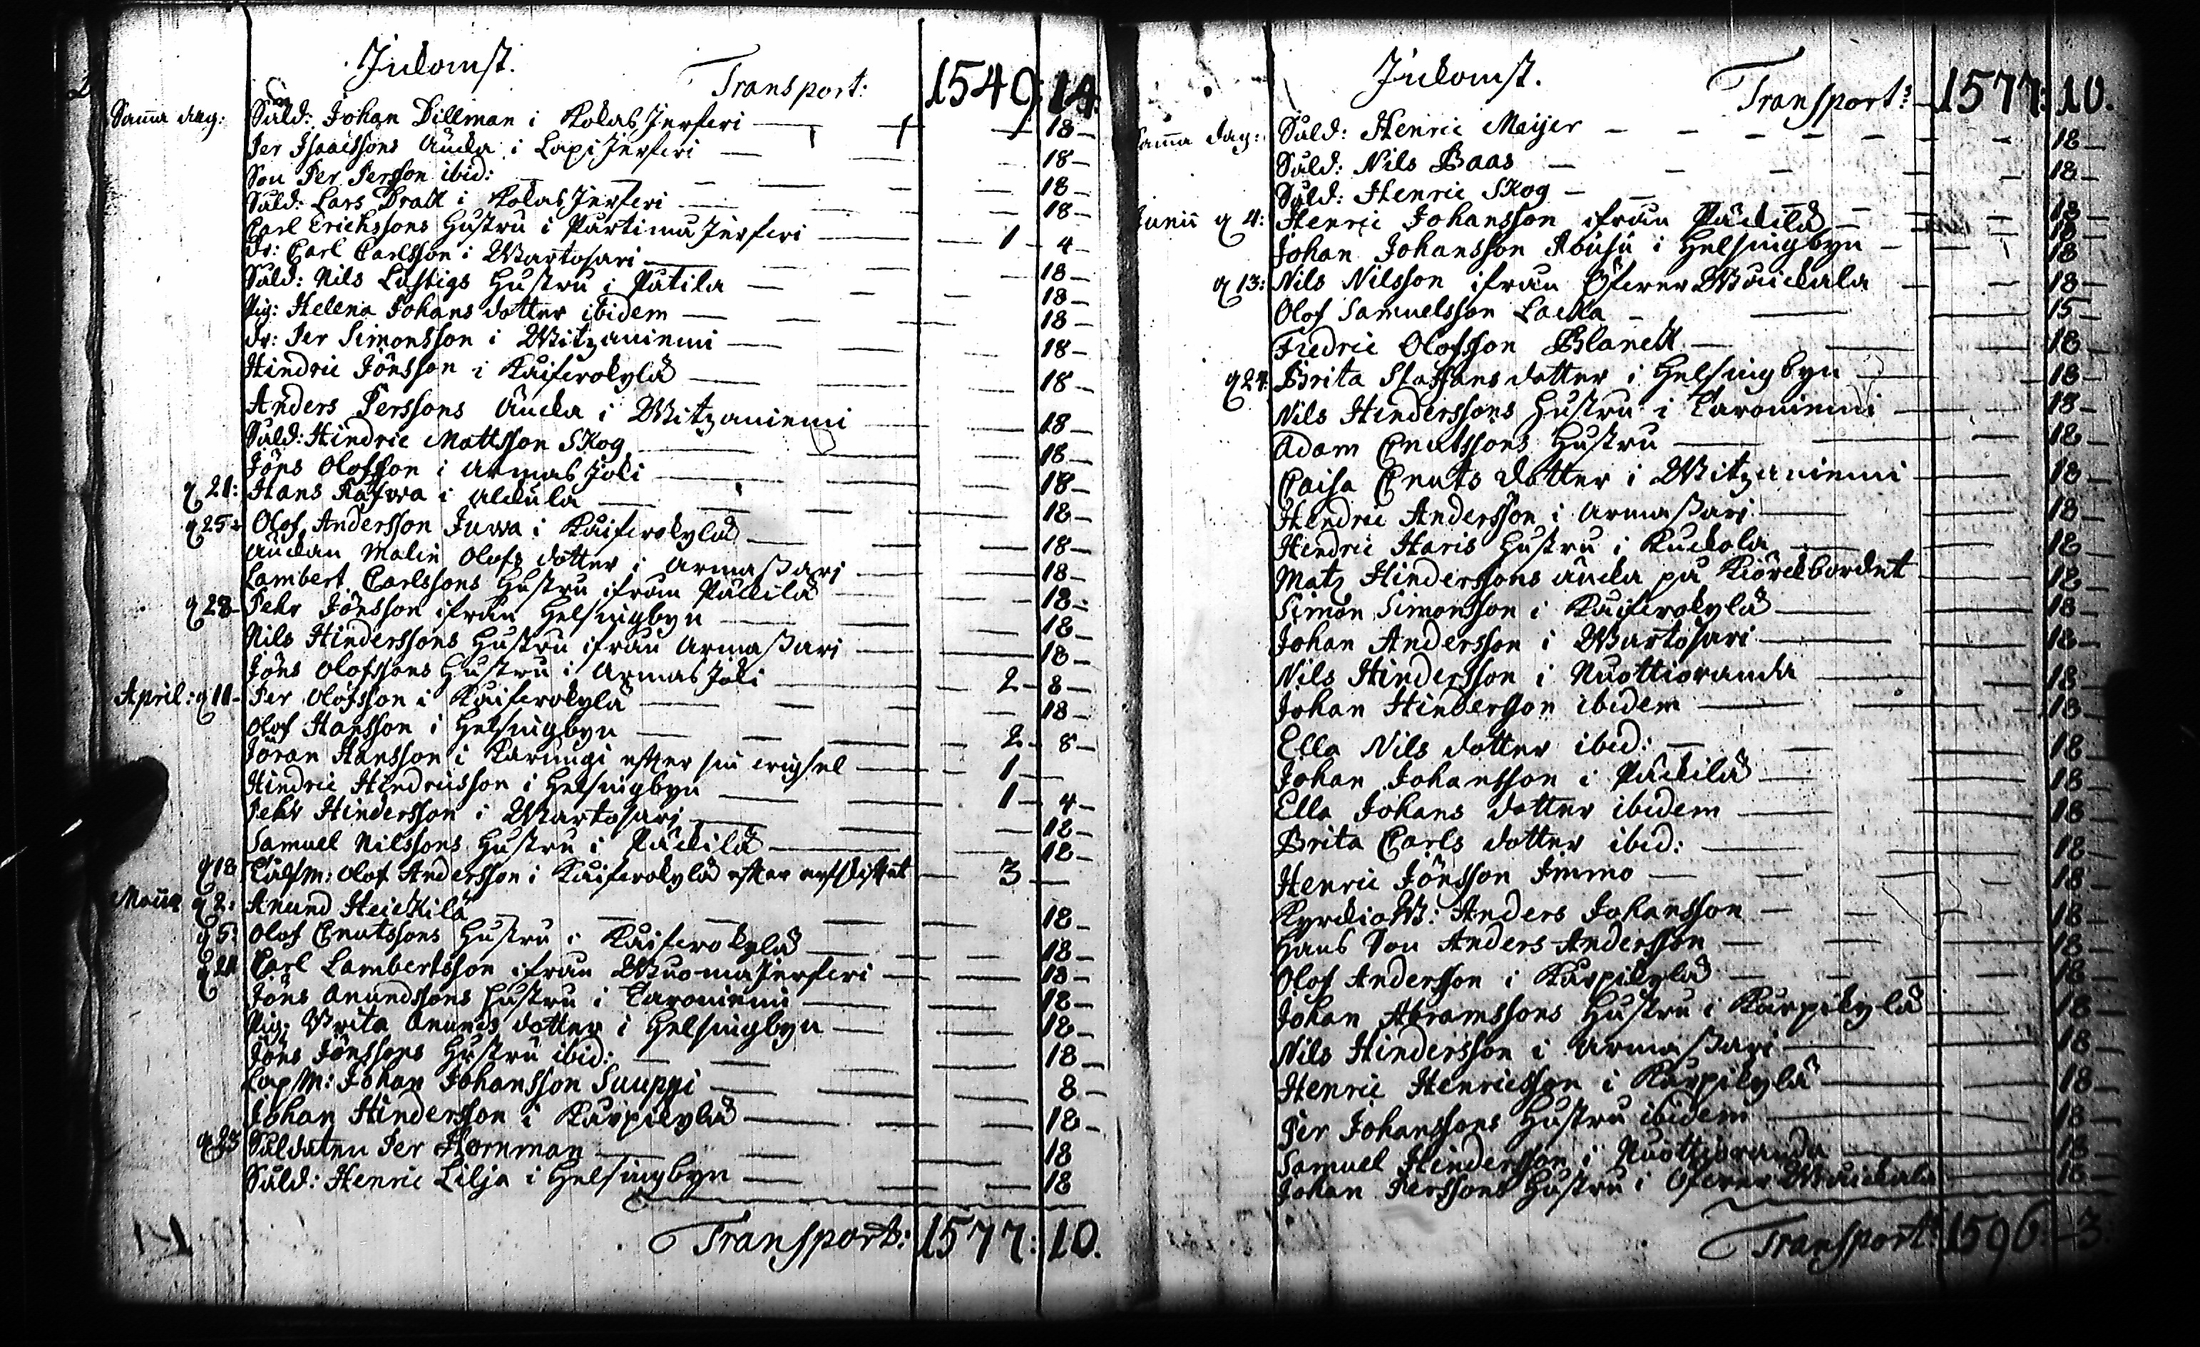 Inkomst.
Transport: 1549: 14.
Samma dag: Sold: Johan Dillman i KolasJerfwi — 18 —
Per Isaacssons Äncka i LapiJerfwi — 18 —
Son Per Persson ibid: — 18 —
Sold: Lars Brall i KolasJerfwi — 18 —
Carl Erichssons Hustru i PartimaJerfwi — 1 — 4 —
Dr: Carl Carlsson i Martosari — 18 —
Sold: Nils Lustigs Hustru i Päckilä — 18 —
Pig: Helena Johans dotter ibidem — 18 —
Dr: Per Simonsson i Witzaniemi — 18 —
Hindric Jönsson i Kuiferokylä — 18 —
Anders Perssons Äncka i Witzaniemi — 18 —
Sold: Hindric Mattsson Skog — 18 —
Jöns Olofsson i ArmasJoki — 18 —
q 21: Hans Rafwa i Alckula — 18 —
q 25: Olof Andersson Juwa i Kuiferokylä — 18 —
Änckan Malin Olofs dotter i Armassari — 18 —
Lambert Carlssons Hustru ifrån Päckilä — 18 —
q 28 — Pehr Jönsson ifrån Helsingbyn — 18 —
Nils Hinderssons Hustru ifrån Armassari — 18 —
Jöns Olofssons Hustru i ArmasJoki — 2 — 8 —
April: q 11 — Per Olofsson i Kuiferokylä — 18 —
Olof Hansson i Helsingbyn — 2 — 8 —
Jöran Hansson i Karungi efter sin wigsel — 1 —
Hindric Hindricsson i Helsingbyn — 1 — 4 —
Pehr Hindersson i Martosari — 18 —
Samuel Nilssons Hustru i Päckilä — 18 —
q 18 Länsm: Olof Andersson i Kuiferokylä efter arfskiftet — 3 —
q 2: Anund Heickilä — 18 —
q 5: Olof Cnutssons Hustru i Kuiferokylä — 18 —
q 21 Carl Lambertsson ifrån WuomaJerfwi — 18 —
Jöns Anundssons Hustru i Taroniemi — 18 —
Pig: Brita Anunds dotter i Helsingbyn — 18 —
Jöns Jönssons Hustru ibid: — 18 —
LapM: Johan Johansson Suuppi — 8 —
Johan Hindersson i Karpikylä — 18 —
q 23 Soldaten Per Hornman — 18
Sold: Henric Lilja i Helsingbyn — 18
Transport: 1577: 10.
Inkomst.
Transport: 1577: 10.
Samma dag: Sold: Henric Meijer — 18 —
Sold: Nils Baas — 18 —
Sold: Henric Skog — 18 —
Junii q 4: Henric Johansson ifrån Päckilä — 18 —
Johan Johansson Rousu i Helsingbyn — 18
q 13: Nils Nilsson ifrån Öfwer Wuickala — 18 —
Olof Samuelsson Lacka — 15 —
Fredric Olofsson Blanck — 18 —
q 24: Brita Staffans dotter i Helsingbyn — 18 —
Nils Hinderssons Hustru i Taroniemi — 18 —
Adam Cnutssons Hustru — 18 —
Caisa Cnuts dotter i Witzaniemi — 18 —
Hindric Andersson i Armassari — 18 —
Hindric Haris Hustru i Kuckola — 18 —
Matz Hinderssons äncka på Kiörckbordet — 18 —
Simon Simonsson i Kuiferokylä — 18 —
Johan Andersson i Martosari — 18 —
Nils Hindersson i Nuottioranda — 18 —
Johan Hindersson ibidem — 18 —
Ella Nils dotter ibid: — 18 —
Johan Johansson i Päckilä — 18 —
Ella Johans dotter ibidem — 18 —
Brita Carls dotter ibid: — 18 —
Henric Jönsson Immo — 18 —
KyrckioW: Anders Johansson — 18 —
Hans Son Anders Andersson — 18 —
Olof Andersson i Karpikylä — 18 —
Johan Abramssons Hustru i Karpikylä — 18 —
Nils Hindersson i Armassari — 18 —
Henric Henricsson i Karpikylä — 18 —
Per Johanssons Hustru ibidem — 18 —
Samuel Hindersson i Nuottioranda — 18 —
Johan Perssons Hustru i Öfwer Wuickala — 18 —
Transport: 1596 — 3.